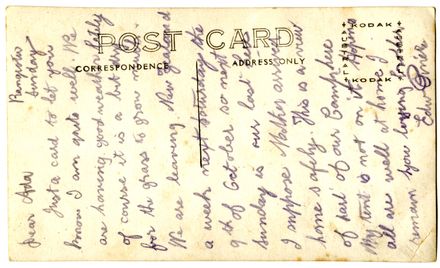 POST CARD
CORRESPONDENCE ADDRESS ONLY
KODAK
KODAK
Rangiotu
Sunday
Dear Ada,
Just a card to let you
know I am quite well. We
are having good weather lately
of course it is a bit dry
for the grass to grow
We are leaving New Zealand
a week next Saturday the
9th of October so next
Sunday is our last here
I suppose Mother arrived
home safely. This is a view
of part of our Campsite
My tent is not on it. Hoping
all are well at home I
remain your loving brother
Edw Price